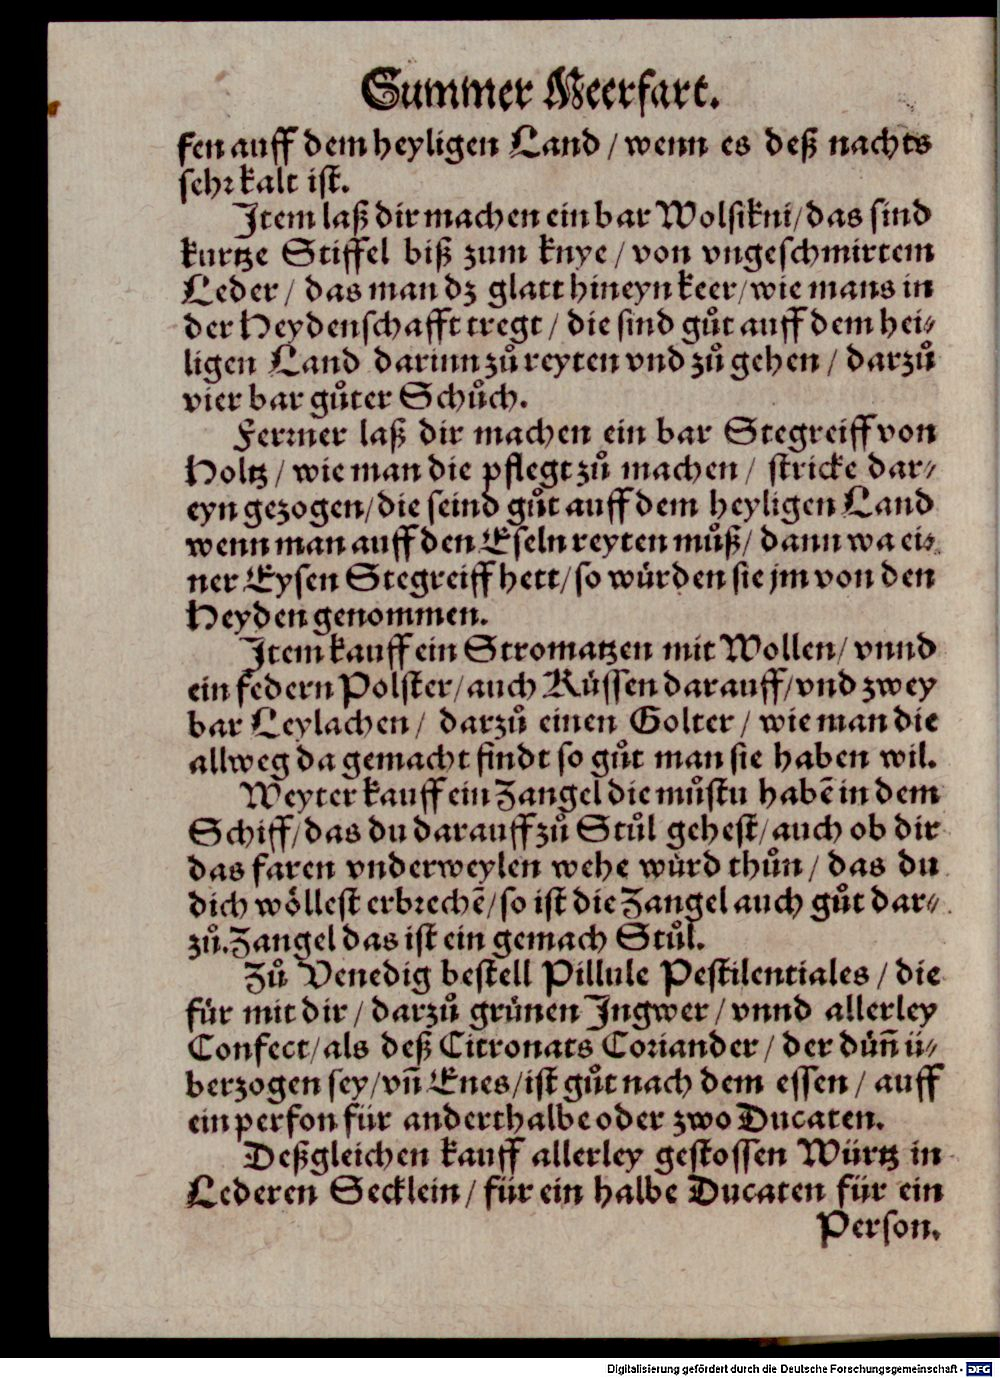 Summer Meerfart.
fen auff dem heyligen Land / wenn es deß nachts
sehr kalt ist.
Item laß dir machen ein bar Wolsikni / das sind
kurtze Stiffel biß zum knye / von vngeschmirtem
Leder / das man dz glatt hineyn keer / wie mans in
der Heydenschafft tregt / die sind gůt auff dem hei⸗
ligen Land darinn zů reyten vnd zů gehen / darzů
vier bar gůter Schůch.
Ferrner laß dir machen ein bar Stegreiff von
Holtz / wie man die pflegt zů machen / stricke dar⸗
eyn gezogen / die seind gůt auff dem heyligen Land
wenn man auff den Eseln reyten můß / dann wa ei⸗
ner Eysen Stegreiff hett / so würden sie jm von den
Heyden genommen.
Item kauff ein Stromatzen mit Wollen / vnnd
ein federn Polster / auch Küssen darauff / vnd zwey
bar Leylachen / darzů einen Golter / wie man die
allweg da gemacht findt so gůt man sie haben wil.
Weyter kauff ein Zangel die můstu habē in dem
Schiff / das du darauff zů Stůl gehest / auch ob dir
das faren vnderweylen wehe würd thůn / das du
dich wöllest erbrechē / so ist die Zangel auch gůt dar⸗
zů. Zangel das ist ein gemach Stůl.
Zů Venedig bestell Pillule Pestilentiales / die
für mit dir / darzů grünen Ingwer / vnnd allerley
Confect / als deß Citronats Coriander / der dün̄ ü⸗
berzogen sey / vn̄ Enes / ist gůt nach dem essen / auff
ein perfon für anderthalbe oder zwo Ducaten.
Deßgleichen kauff allerley gestossen Würtz in
Lederen Secklein / für ein halbe Ducaten für ein
Person.
Digitalisierung gefördert durch die Deutsche Forschungsgemeinschaft - DFG